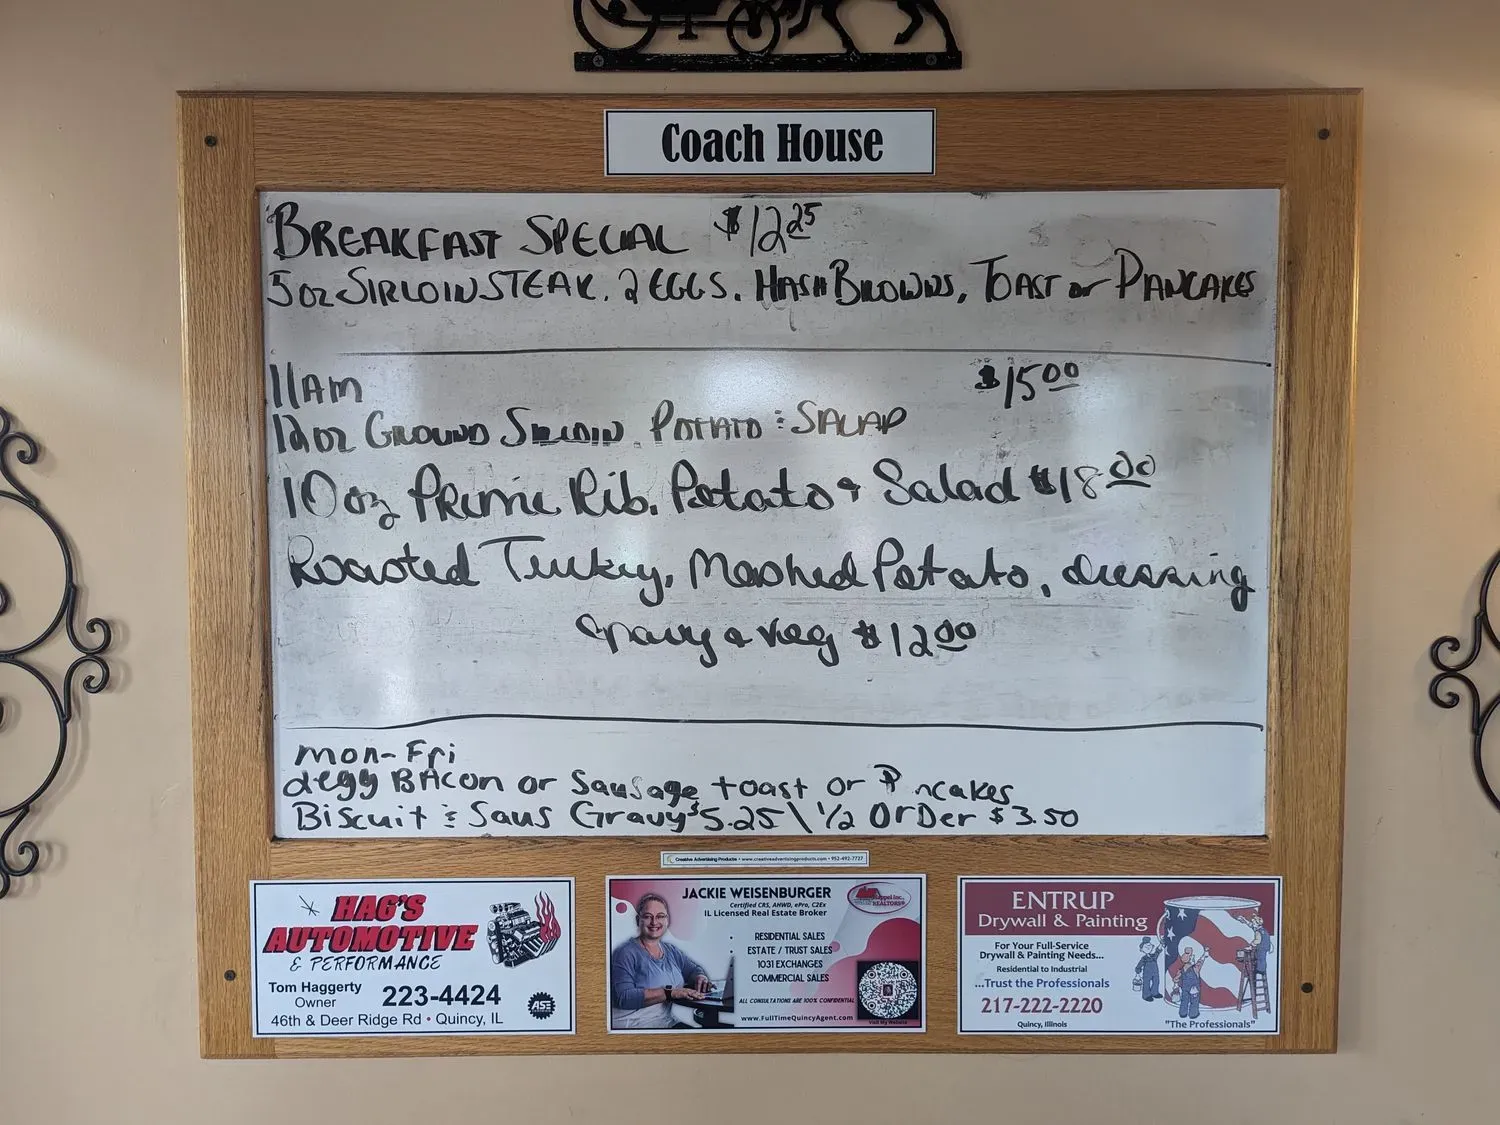 Coach House
BREAKFAST SPECIAL $12.25
5oz SIRLOIN STEAK, 2 EGGS, HASH BROWNS, TOAST or PANCAKES
11AM $15.00
12oz GROUND SIRLOIN, POTATO & SALAD
10oz Prime Rib, Potato & Salad $18.00
Roasted Turkey, Mashed Potato, dressing
Gravy & Veg $12.00
Mon-Fri
2egg BACon or Sausage toast or P ncakes
Biscuit & Saus Gravy $5.25 \ 1/2 OrDer $3.50
Creative Advertising Products • www.creativeadvertisingproducts.com • 952-492-7727
HAG'S
AUTOMOTIVE
& PERFORMANCE
Tom Haggerty
Owner
223-4424
46th & Deer Ridge Rd • Quincy, IL
ASE
JACKIE WEISENBURGER
Certified CRS, AHWD, ePro, C2Ex
IL Licensed Real Estate Broker
REALTORS®
RESIDENTIAL SALES
ESTATE / TRUST SALES
1031 EXCHANGES
COMMERCIAL SALES
ALL CONSULTATIONS ARE 100% CONFIDENTIAL
www.FullTimeQuincyAgent.com
Visit My Website
ENTRUP
Drywall & Painting
For Your Full-Service
Drywall & Painting Needs...
Residential to Industrial
...Trust the Professionals
217-222-2220
Quincy, Illinois
"The Professionals"